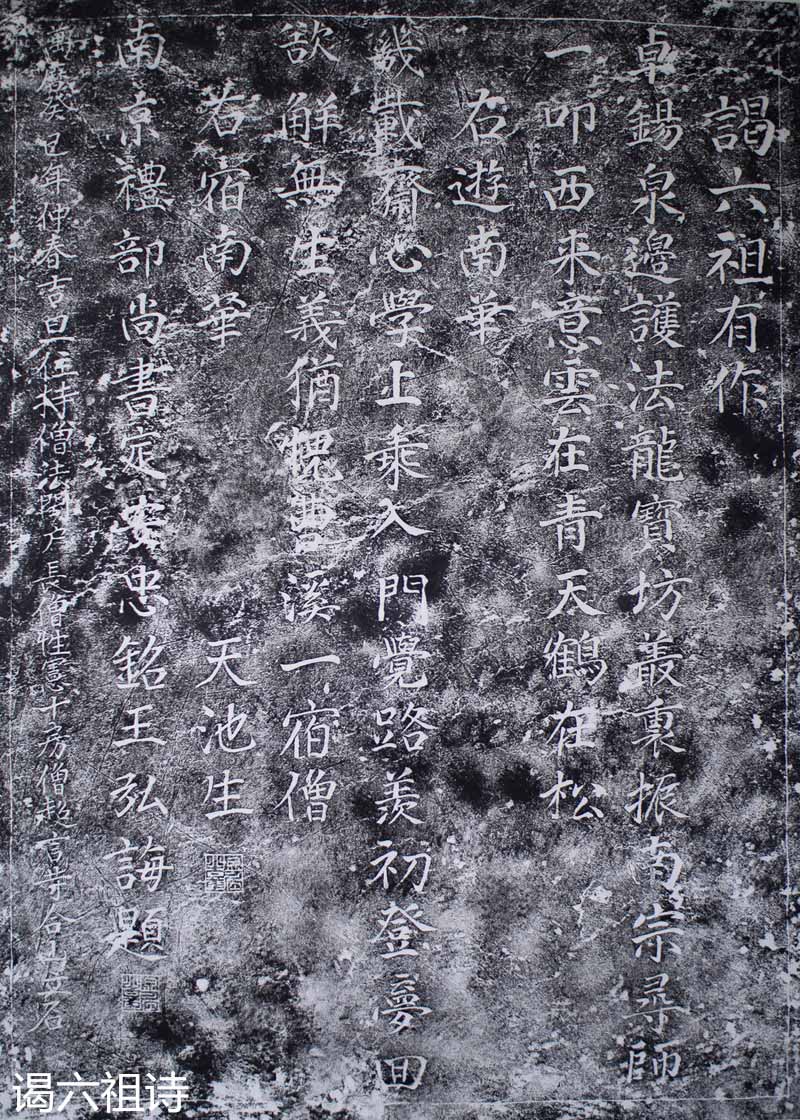 謁六祖有作
卓錫泉邊護法龍寶坊叢裏振南宗尋師
一叩西来意雲在青天鶴在松
右遊南華
幾載齋心學上乘入門覺路羨初登夢回
欲觧無生義猶愧曹溪一宿僧
右宿南華 天池生
南京禮部尚書定安忠銘王弘誨題
萬曆癸巳年仲春吉旦住持僧法戶長僧性憲十房僧超言等合山立石
谒六祖诗